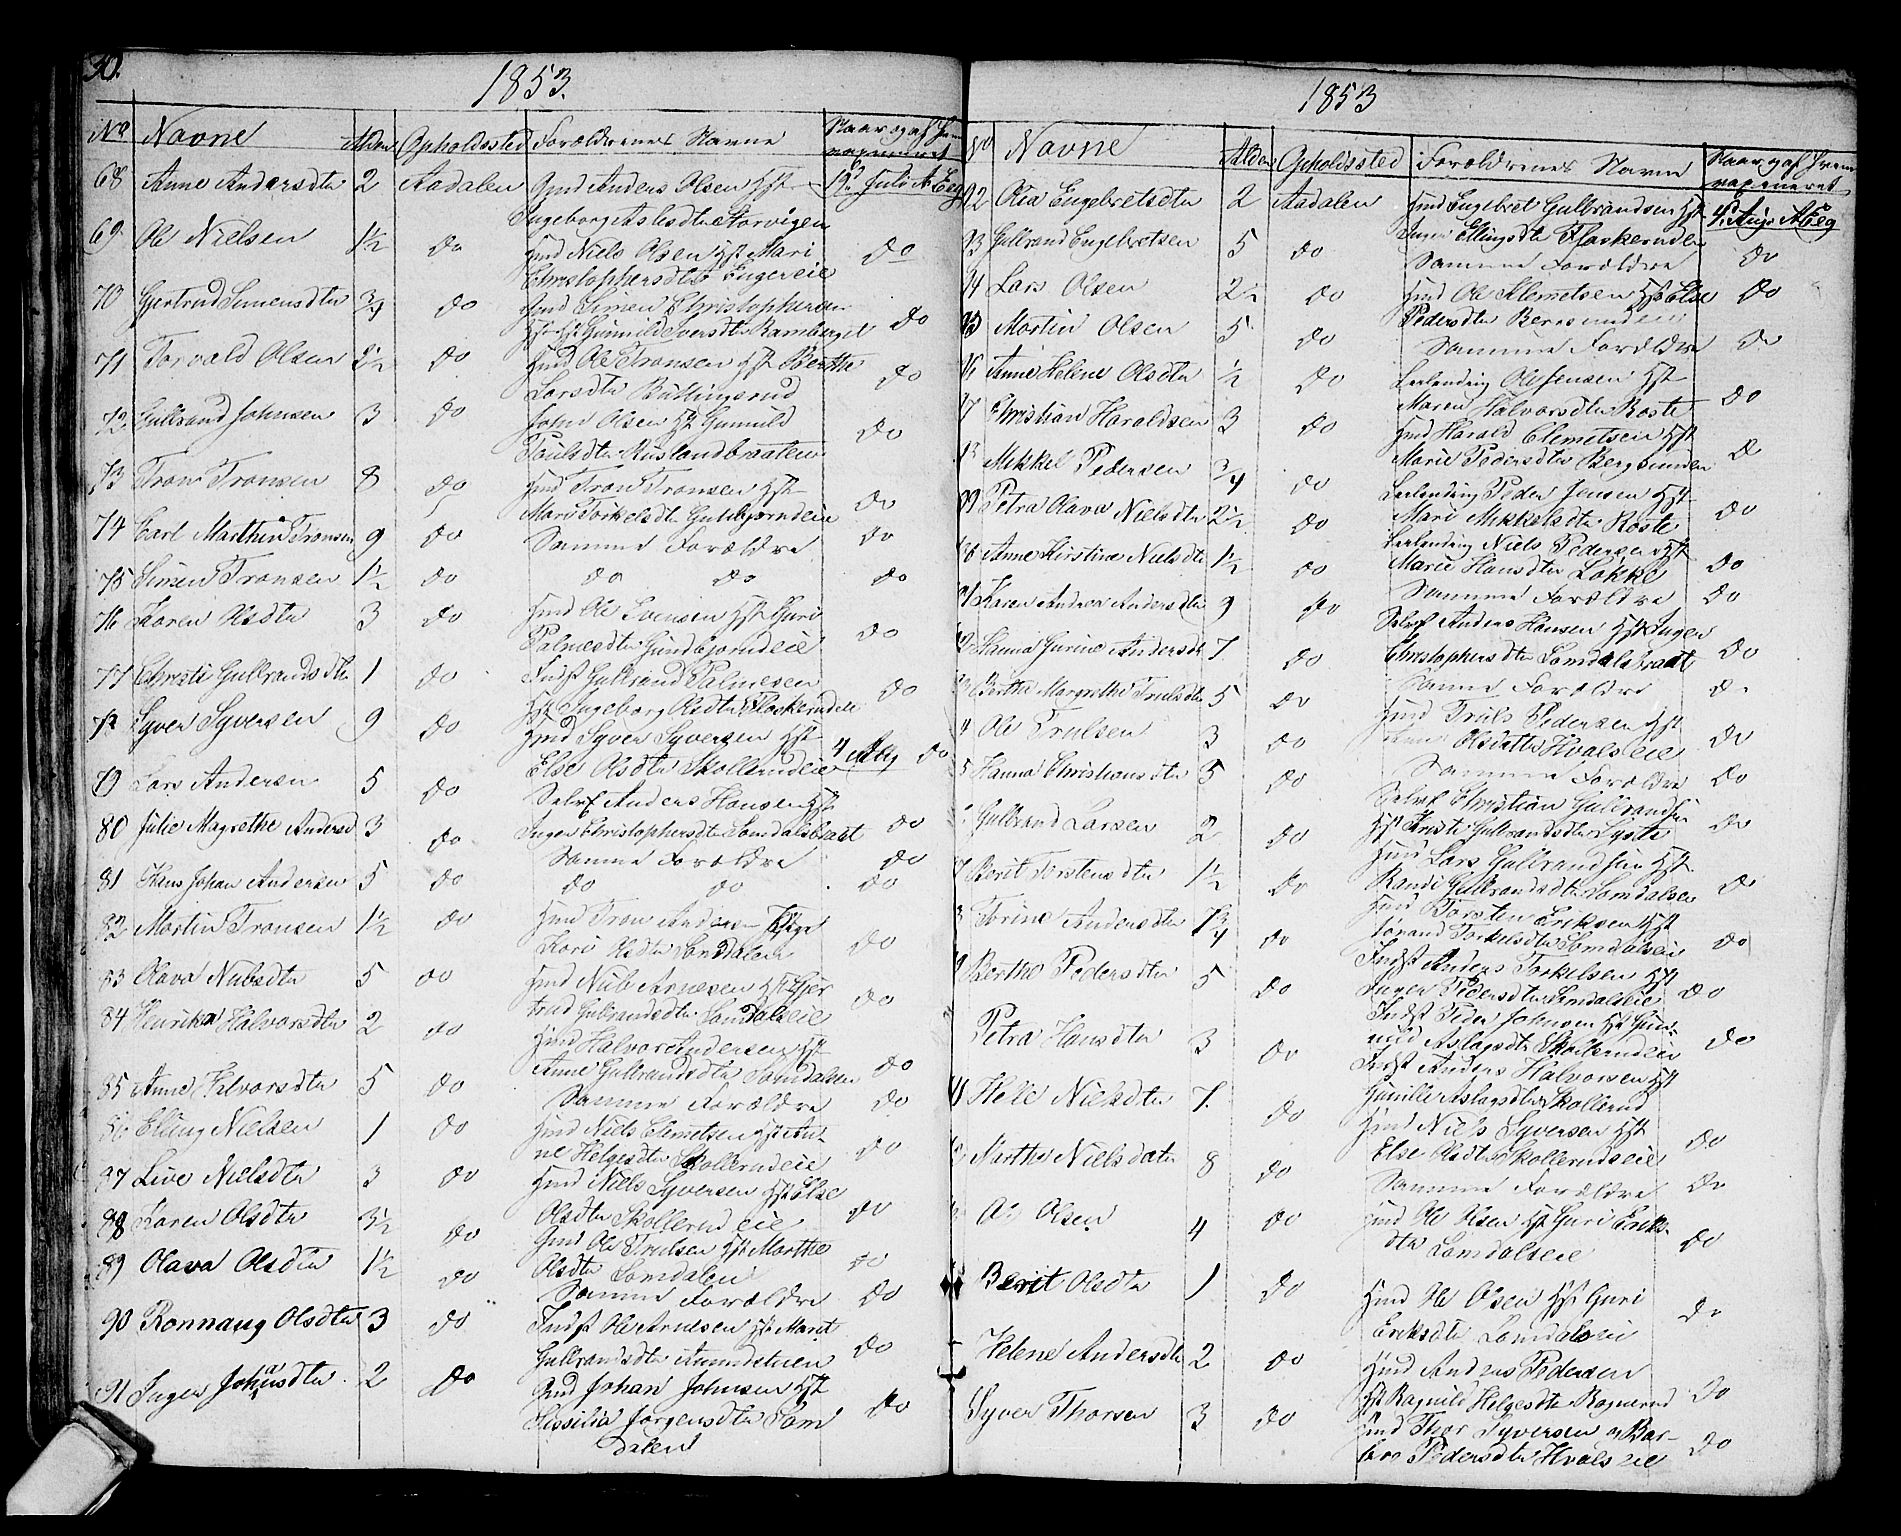 30.
1853.
No Navne Alder Opholdssted Forældrenes Navne Naar og af hvem
vaxineret
68 Anne Andersdtr 2 Aadalen Gmd Anders Olsen Hst 12 Juli A Eeg
Ingeborg Aslesdtr Storvigen
69. Ole Nielsen 1½ do Hmd Niels Olsen Hst Mari do
Christophersdtr Engereie
70 Gjertrud Simensdtr 3/4 do Gmd Simen Christophersen do
Hst Gunnild Iversdtr Ramberget
71 Torvald Olsen 2½ do Hmd Ole Tronsen Hst Berthe do
Larsdtr Buttingsrud
72 Gulbrand Johnsen 3 do John Olsen Hst Gunnild do
Paulsdtr Ruslandbraaten
73 Tron Tronsen 8 do Hmd Tron Tronsen Hst do
Mari Torkelsdtr Gulbjørndeie
74 Carl Marthin Tronsen 9 do Samme Forældre do
75 Simen Tronsen 1½ do do do do
76 Karen Olsdtr 3 do Hmd Ole Svensen Hst Guri do
Palmesdtr Gulbjørndeie
77 Christi Gulbrandsdtr 1 do Indst Gulbrand Palmesen do
Hst Ingeborg Olsdtr Flaskerudeie
78 Syver Syversen 9 do Hmd Syver Syversen Hst 4 Aug do
Else Olsdtr Skollerudeie
79 Lars Andersen 5 do Selvf Anders Hansen Hst
Inger Christophersdtr Somdalsbraat do
80 Julie Magrethe Andersd 3 do Samme Forældre do
81 Hans Johan Andersen 5 do do do do
82 Martin Tronsen 1½ do Hmd Tron Andersen Hst
Kari Olsdtr Somdalen do
83 Olava Nielsdtr 5 do Hmd Niels Arnesen Hst Gjer
trud Gulbrandsdtr Somdalseie do
84 Henrika Halvorsdtr 2 do Hmd Halvor Andersen Hst
Anne Gulbrandsdtr Somdalseie do
85 Anne Halvorsdtr 5 do Samme Forældre do
86 Elling Nielsen 1 do Hmd Niels Clemetsen Hst An-
ne Helgesdtr Skollerudeie do
87 Live Nielsdtr 3 do Hmd Niels Syversen Hst Else
Olsdtr Skollerudeie do
88 Karen Olsdtr 3½ do Hmd Ole Trulsen Hst Marthe
Olsdtr Somdalen do
89 Olava Olsdtr 1½ do Samme Forældre do
90 Ronnaug Olsdtr 3 do Indst Ole Arnesen Hst Marit
Gulbrandsdtr do
91 Inger Johansdtr 2 do Gmd Johan Johnsen Hst
Sissilia Jørgensdtr Som do
dalen
1853
No Navne Alder Opholdssted Forældrenes Navne Naar og af hvem
vaxineret
92 Olea Engebretsdtr 2 Aadalen Hmd Engebret Gulbrandsen Hst 4. Aug A Eeg
Inger Ellingsdtr Flaskerudeie
93 Gulbrand Engebretsen 5 do Samme Forældre do
94 Lars Olsen 2½ do Hmd Ole Klemetsen Hst Else do
Pedersdtr
95 Martin Olsen 5 do Samme Forældre do
96 Anne Helene Olsdtr ½ do Leilending Ole Jensen Hst
Maren Halvorsdtr Roste do
97 Christian Haraldsen 3 do Hmd Harald Clemetsen Hst
Marie Pedersdtr Bergsunden do
98 Mikkel Pedersen 3/4 do Leilending Peder Jensen Hst
Mari Mikkelsdtr Roste do
99 Petra Olava Nielsdtr 2½ do Leilending Niels Pedersen Hst
Marie Hansdtr Løkke do
Anne Kirstine Nielsdtr 1½ do Samme Forældre do
Karen Andrea Andersdtr 9 do Selvf Anders Hansen Hst Inger
Christophersdtr Somdalsbraat do
Hanna Gurine Andersdtr 7 do Samme Forældre do
Berthe Margrethe Trulsdtr 5 do Hmd Truls Pedersen Hst
Olsdatter Hvalseie do
4 Ole Trulsen 3 do Samme Forældre do
5 Hanna Christiansdtr 5 do Selvf Christian Gulbrandsen
Hst Kristi Gulbrandsdtr do
Gulbrand Larsen 2 do Hmd Lars Gulbrandsen Hst
Randi Gulbrandsdtr Somdalseie do
7 Berit Torstensdtr 1½ do Hmd Torsten Eriksen Hst
Jørand Torkelsdtr Somdalseie do
8 Torine Andersdtr 1 3/4 do Indst Anders Torkelsen Hst
Inger Pedersdtr Somdalseie do
9 Berthe Pedersdtr 5 do Indst Peder Johnsen Hst Gun-
nild Aslagsdtr Skollerudeie do
Petra Hansdtr 3 do Indst Anders Halvorsen Hst
Gunille Aslagsdtr Skollerud
11 Helle Nielsdtr 7. do Hmd Niels Syversen Hst
Else Olsdtr Skollerudseie do
Marthe Nielsdatr 8 do Samme Forældre do
Ole Olsen 4 do Hmd Ole Olsen Hst Guri Eriks-
dtr Somdalseie do
Berit Olsdtr 1 do Hmd Ole Olsen Hst Guri
Eriksdtr Somdalseie do
Helene Andersdtr 2 do Hmd Anders Pedersen
Hst Ragnild Helgesdtr Ragnerud do
Syver Thorsen 3 do Hmd Thor Syversen og Bar-
bro Pedersdtr Hvalseie do